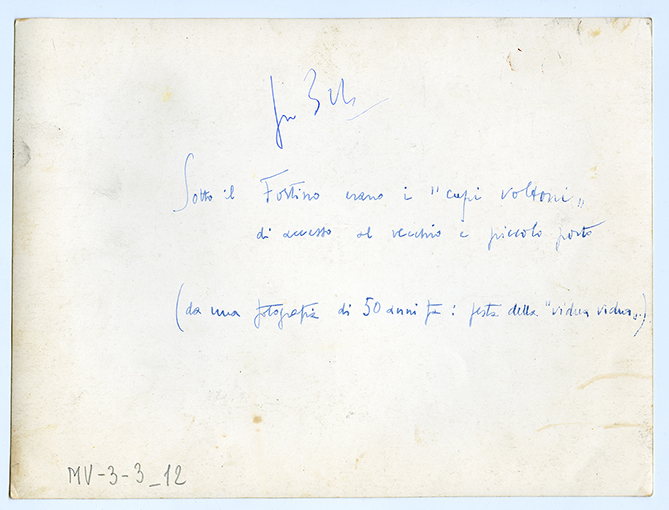 Sotto il Fortino erano i "cupi voltoni"
di accesso al vecchio e piccolo porto
(da una fotografia di 50 anni fa: festa della "vidua vidua".)
MV-3-3_12